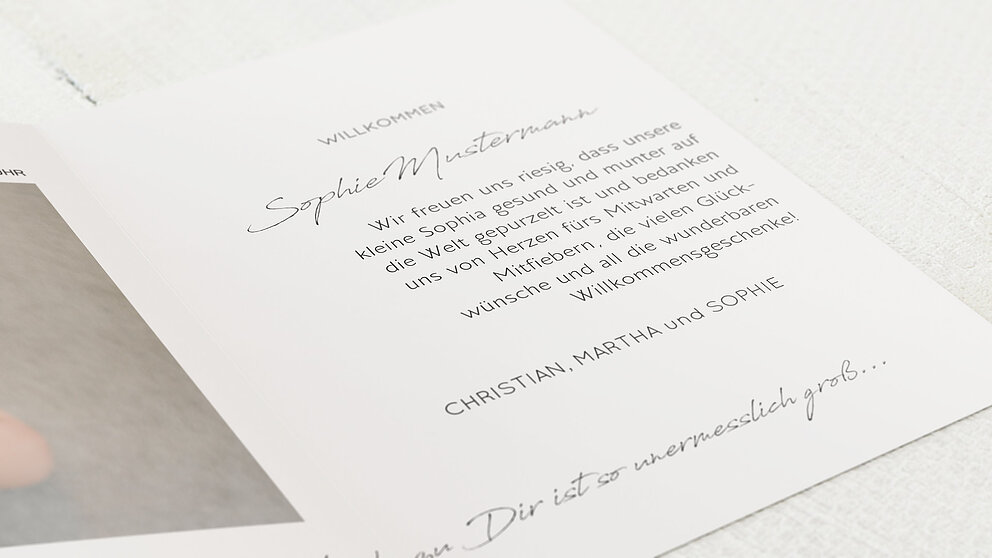 UHR
WILLKOMMEN
Sophie Mustermann
Wir freuen uns riesig, dass unsere
kleine Sophia gesund und munter auf
die Welt gepurzelt ist und bedanken
uns von Herzen fürs Mitwarten und
Mitfiebern, die vielen Glück-
wünsche und all die wunderbaren
Willkommensgeschenke!
CHRISTIAN, MARTHA und SOPHIE
zu Dir ist so unermesslich groß...